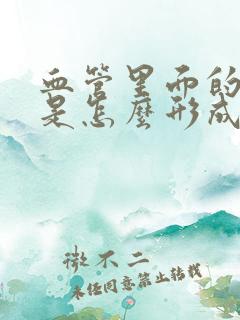 血管里面的
是怎麼形成
微不二
未经同意禁止转载